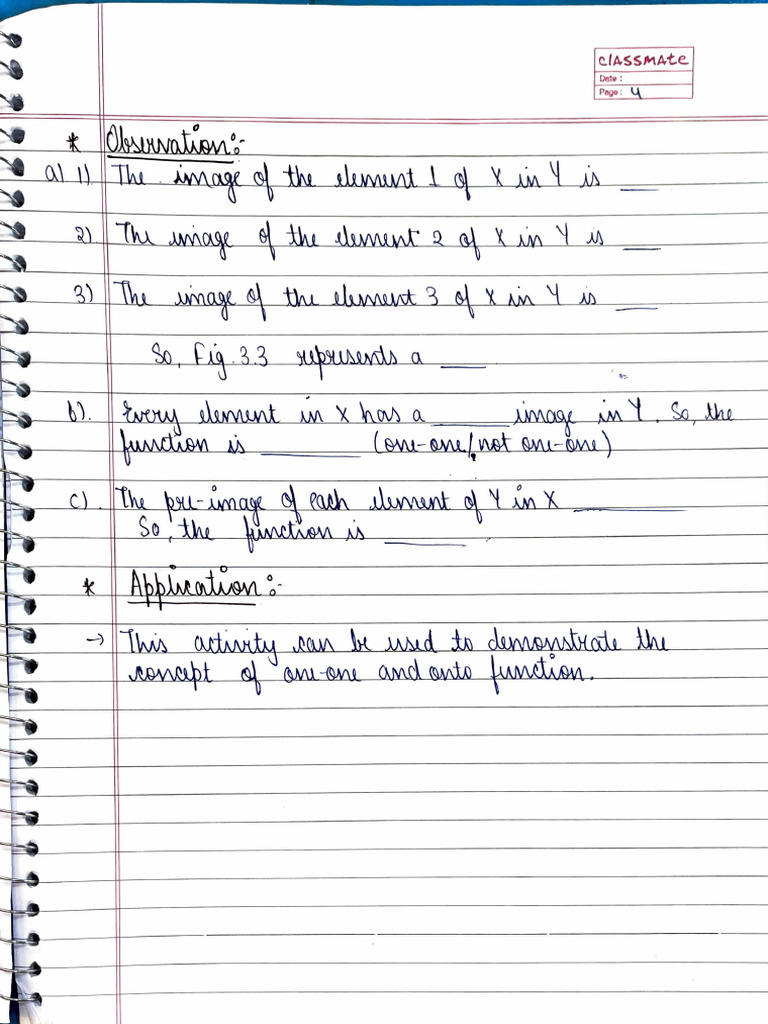 classmate
Date :
Page : 4
* Observation :-
a) 1) The image of the element 1 of X in Y is ___
2) The image of the element 2 of X in Y is ___
3) The image of the element 3 of X in Y is ___
So, Fig. 3.3 represents a ___
b). Every element in X has a _____ image in Y. So, the
function is ________ (one-one/not one-one)
c). The pre-image of each element of Y in X _________
So, the function is _______
* Application :-
→ This activity can be used to demonstrate the
concept of one-one and onto function.